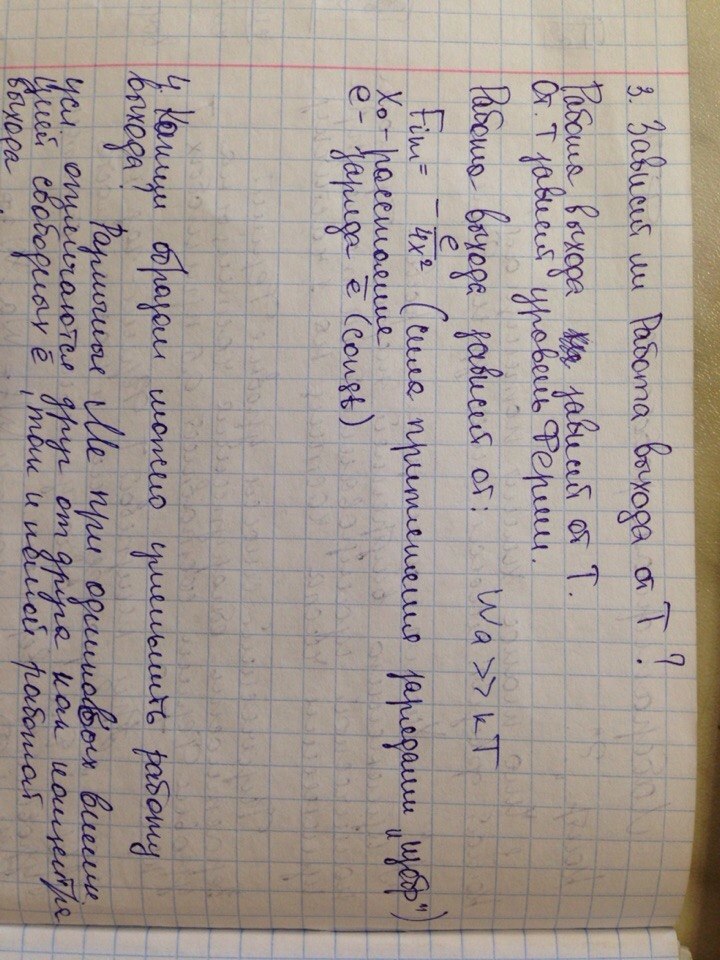 3. Зависит ли Работа выхода от T ?
Работа выхода зависит от T.
От T зависит уровень Ферми.
Работа выхода зависит от: Wa >> kT
Fim = - e / 4x² (сила притяжения зарядами "Щобр")
X₀ - расстояние
e - заряда ē (const)
4. Каким образом можно уменьшить работу
выхода?
Различные Ме при одинаковых внешн
усл отличаются друг от друга как концентра
цией свободных ē, так и малой работой
выхода